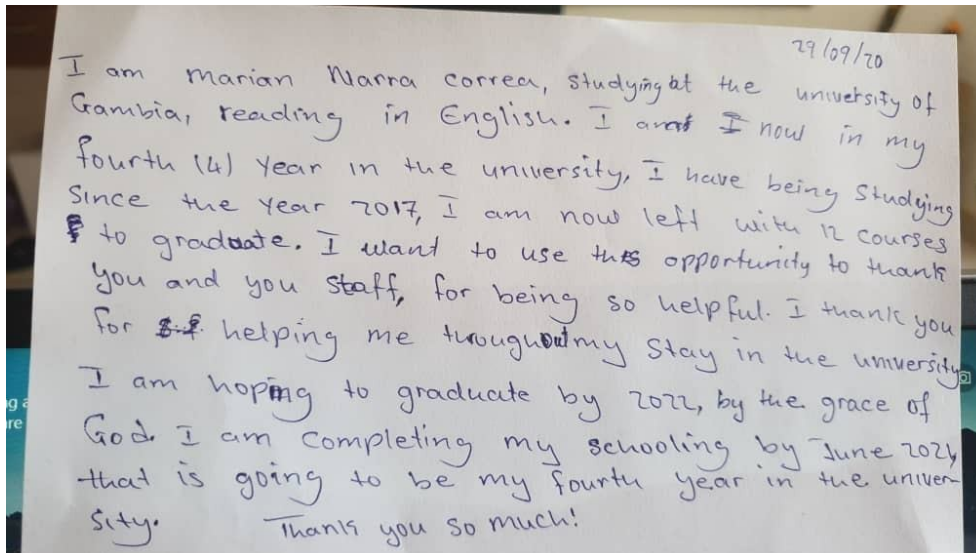 29/09/20
I am marian Narra correa, studying at the university of
Gambia, reading in English. I am I now in my
fourth (4) year in the university, I have being studying
since the year 2017, I am now left with 12 courses
to graduate. I want to use this opportunity to thank
you and you staff, for being so helpful. I thank you
for helping me throughout my stay in the university
I am hoping to graduate by 2022, by the grace of
God. I am completing my schooling by June 2021,
that is going to be my fourth year in the univer-
sity. Thank you so much!